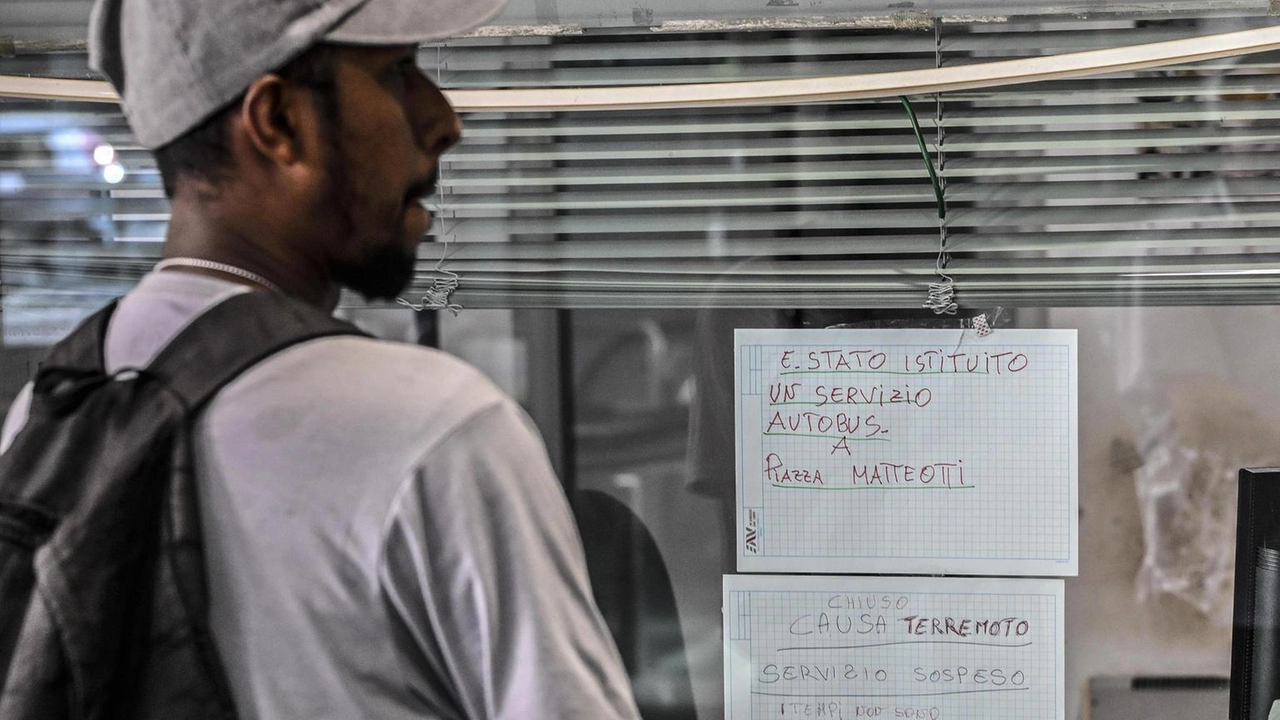 E. STATO ISTITUITO
UN SERVIZIO
AUTOBUS.
A
PIAZZA MATTEOTTI
EAV
CHIUSO
CAUSA TERREMOTO
SERVIZIO SOSPESO
I TEMPI NON SONO